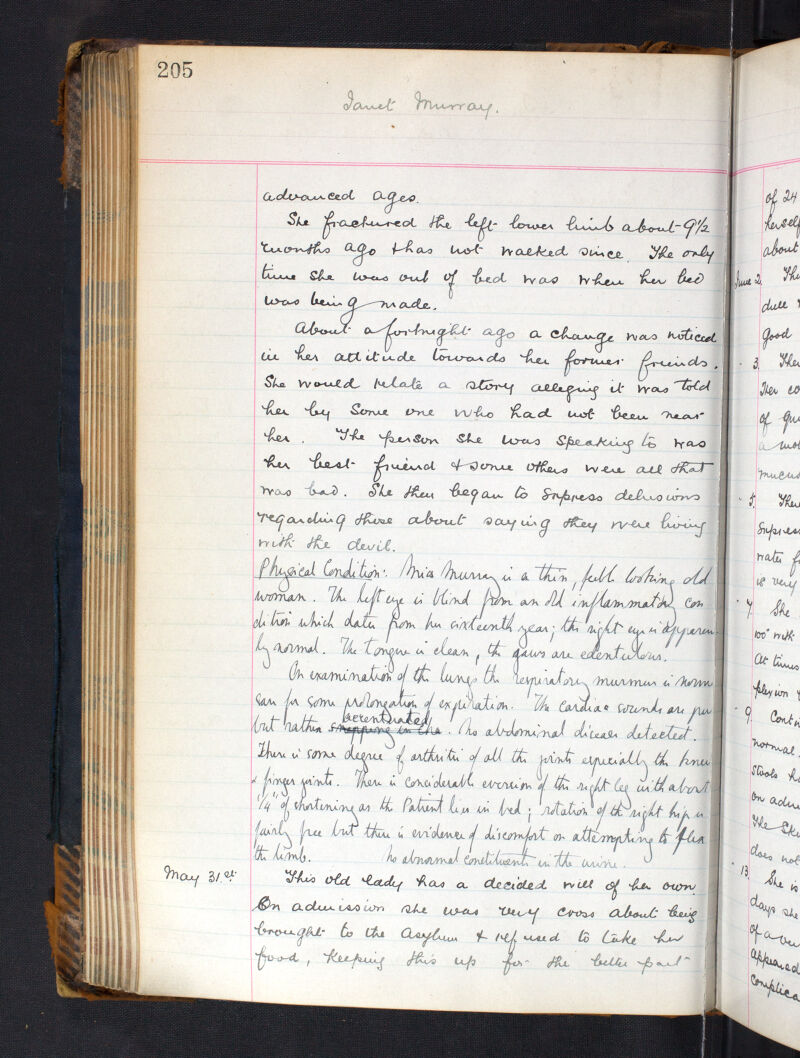 205
Janet Murray.
advanced ages.
She fractured the left lower limb about 9½
months ago & has not walked since. The only
time she was out of bed was when her bed
was being made.
About a fortnight ago a change was noticed
in her attitude towards her former friends.
She would relate a story alleging it was told
her by some one who had not been near
her. The person she was speaking to was
her best friend & some others were all that
was bad. She then began to express delusions
regarding those about saying they were living
with the devil.
Physical Condition: Miss Murray is a thin, feeble looking old
woman. The left eye is blind from an old inflammatory con
dition which dates from her sixteenth year; the right eye is apparen
ly normal. The tongue is clean, the jaws are edentulous.
On examination of the lungs the respiratory murmur is norm
save for some prolongation of expiration. The cardiac sounds are pure
but rather accentuated. No abdominal disease detected.
There is some degree of arthritis of all the joints especially the knee
& finger joints. There is considerable eversion of the right leg with about
¼" of shortening as the Patient lies in bed; rotation of the right hip is
fairly free but there is evidence of discomfort on attempting to flex
the limb. No abnormal constituents in the urine.
May 31.st This old lady has a decided will of her own
On admission she was very cross about being
brought to the Asylum & refused to take her
food, keeping this up for the better part
of 24
herself
about
June 2. The
dull
good
3. Her co
of
mucus
5.
water f
is very
7. She
100° with
At times
plexion
9. Conti
normal.
Stools
on adm
The
does not
13. She is
days she
of a
appeared
complica